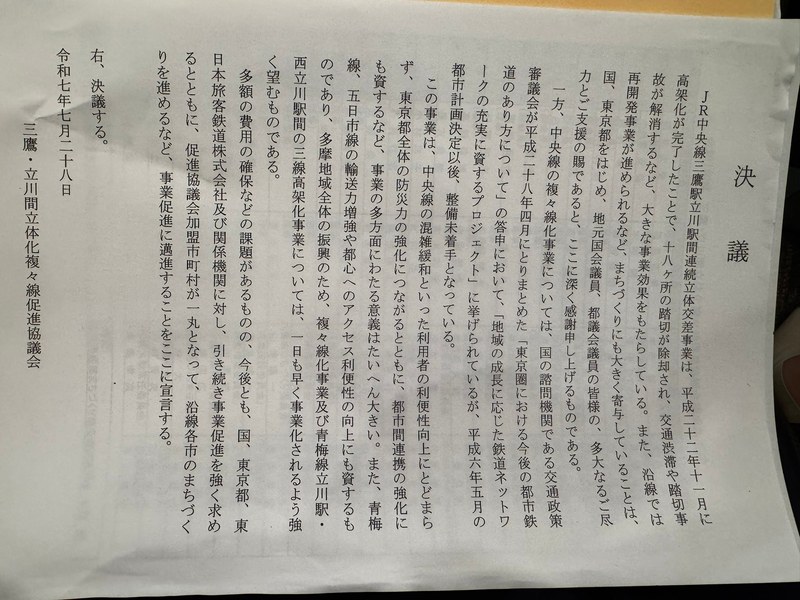 決議
ＪＲ中央線三鷹駅立川駅間連続立体交差事業は、平成二十二年十一月に
高架化が完了したことで、十八ヶ所の踏切が除却され、交通渋滞や踏切事
故が解消するなど、大きな事業効果をもたらしている。また、沿線では
再開発事業が進められるなど、まちづくりにも大きく寄与していることは、
国、東京都をはじめ、地元国会議員、都議会議員の皆様の、多大なるご尽
力とご支援の賜であると、ここに深く感謝申し上げるものである。
一方、中央線の複々線化事業については、国の諮問機関である交通政策
審議会が平成二十八年四月にとりまとめた「東京圏における今後の都市鉄
道のあり方について」の答申において、「地域の成長に応じた鉄道ネットワ
ークの充実に資するプロジェクト」に挙げられているが、平成六年五月の
都市計画決定以後、整備未着手となっている。
この事業は、中央線の混雑緩和といった利用者の利便性向上にとどまら
ず、東京都全体の防災力の強化につながるとともに、都市間連携の強化に
も資するなど、事業の多方面にわたる意義はたいへん大きい。また、青梅
線、五日市線の輸送力増強や都心へのアクセス利便性の向上にも資するも
のであり、多摩地域全体の振興のため、複々線化事業及び青梅線立川駅・
西立川駅間の三線高架化事業については、一日も早く事業化されるよう強
く望むものである。
多額の費用の確保などの課題があるものの、今後とも、国、東京都、東
日本旅客鉄道株式会社及び関係機関に対し、引き続き事業促進を強く求め
るとともに、促進協議会加盟市町村が一丸となって、沿線各市のまちづく
りを進めるなど、事業促進に邁進することをここに宣言する。
右、決議する。
令和七年七月二十八日
三鷹・立川間立体化複々線促進協議会